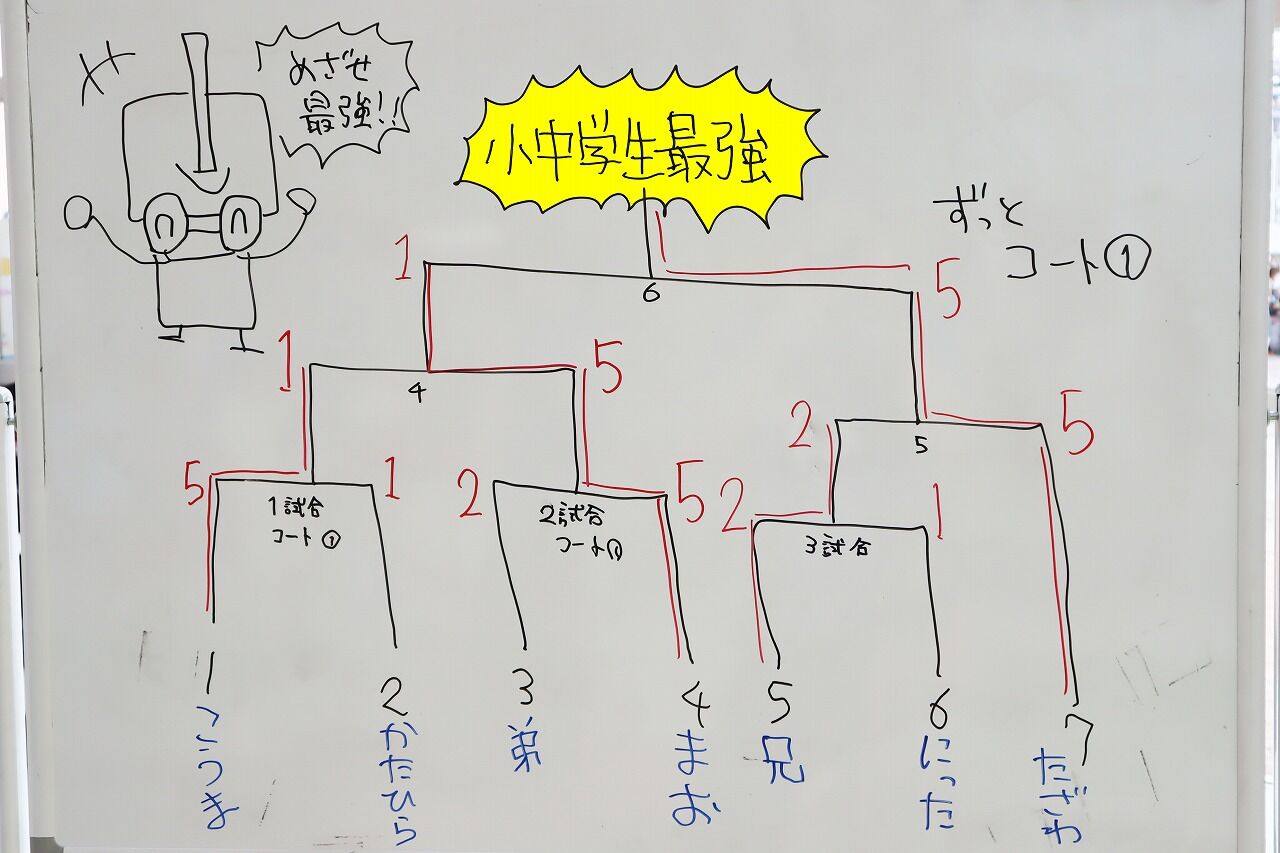 めざせ
最強!!
小中学生最強
ずっと
コート①
1
5
6
1
5
4
2
5
5
5
1
2
5
2
1
1試合
コート①
2試合
コート①
3試合
1
2
3
4
5
6
7
こうま
かたひら
弟
まお
兄
にった
たざわ